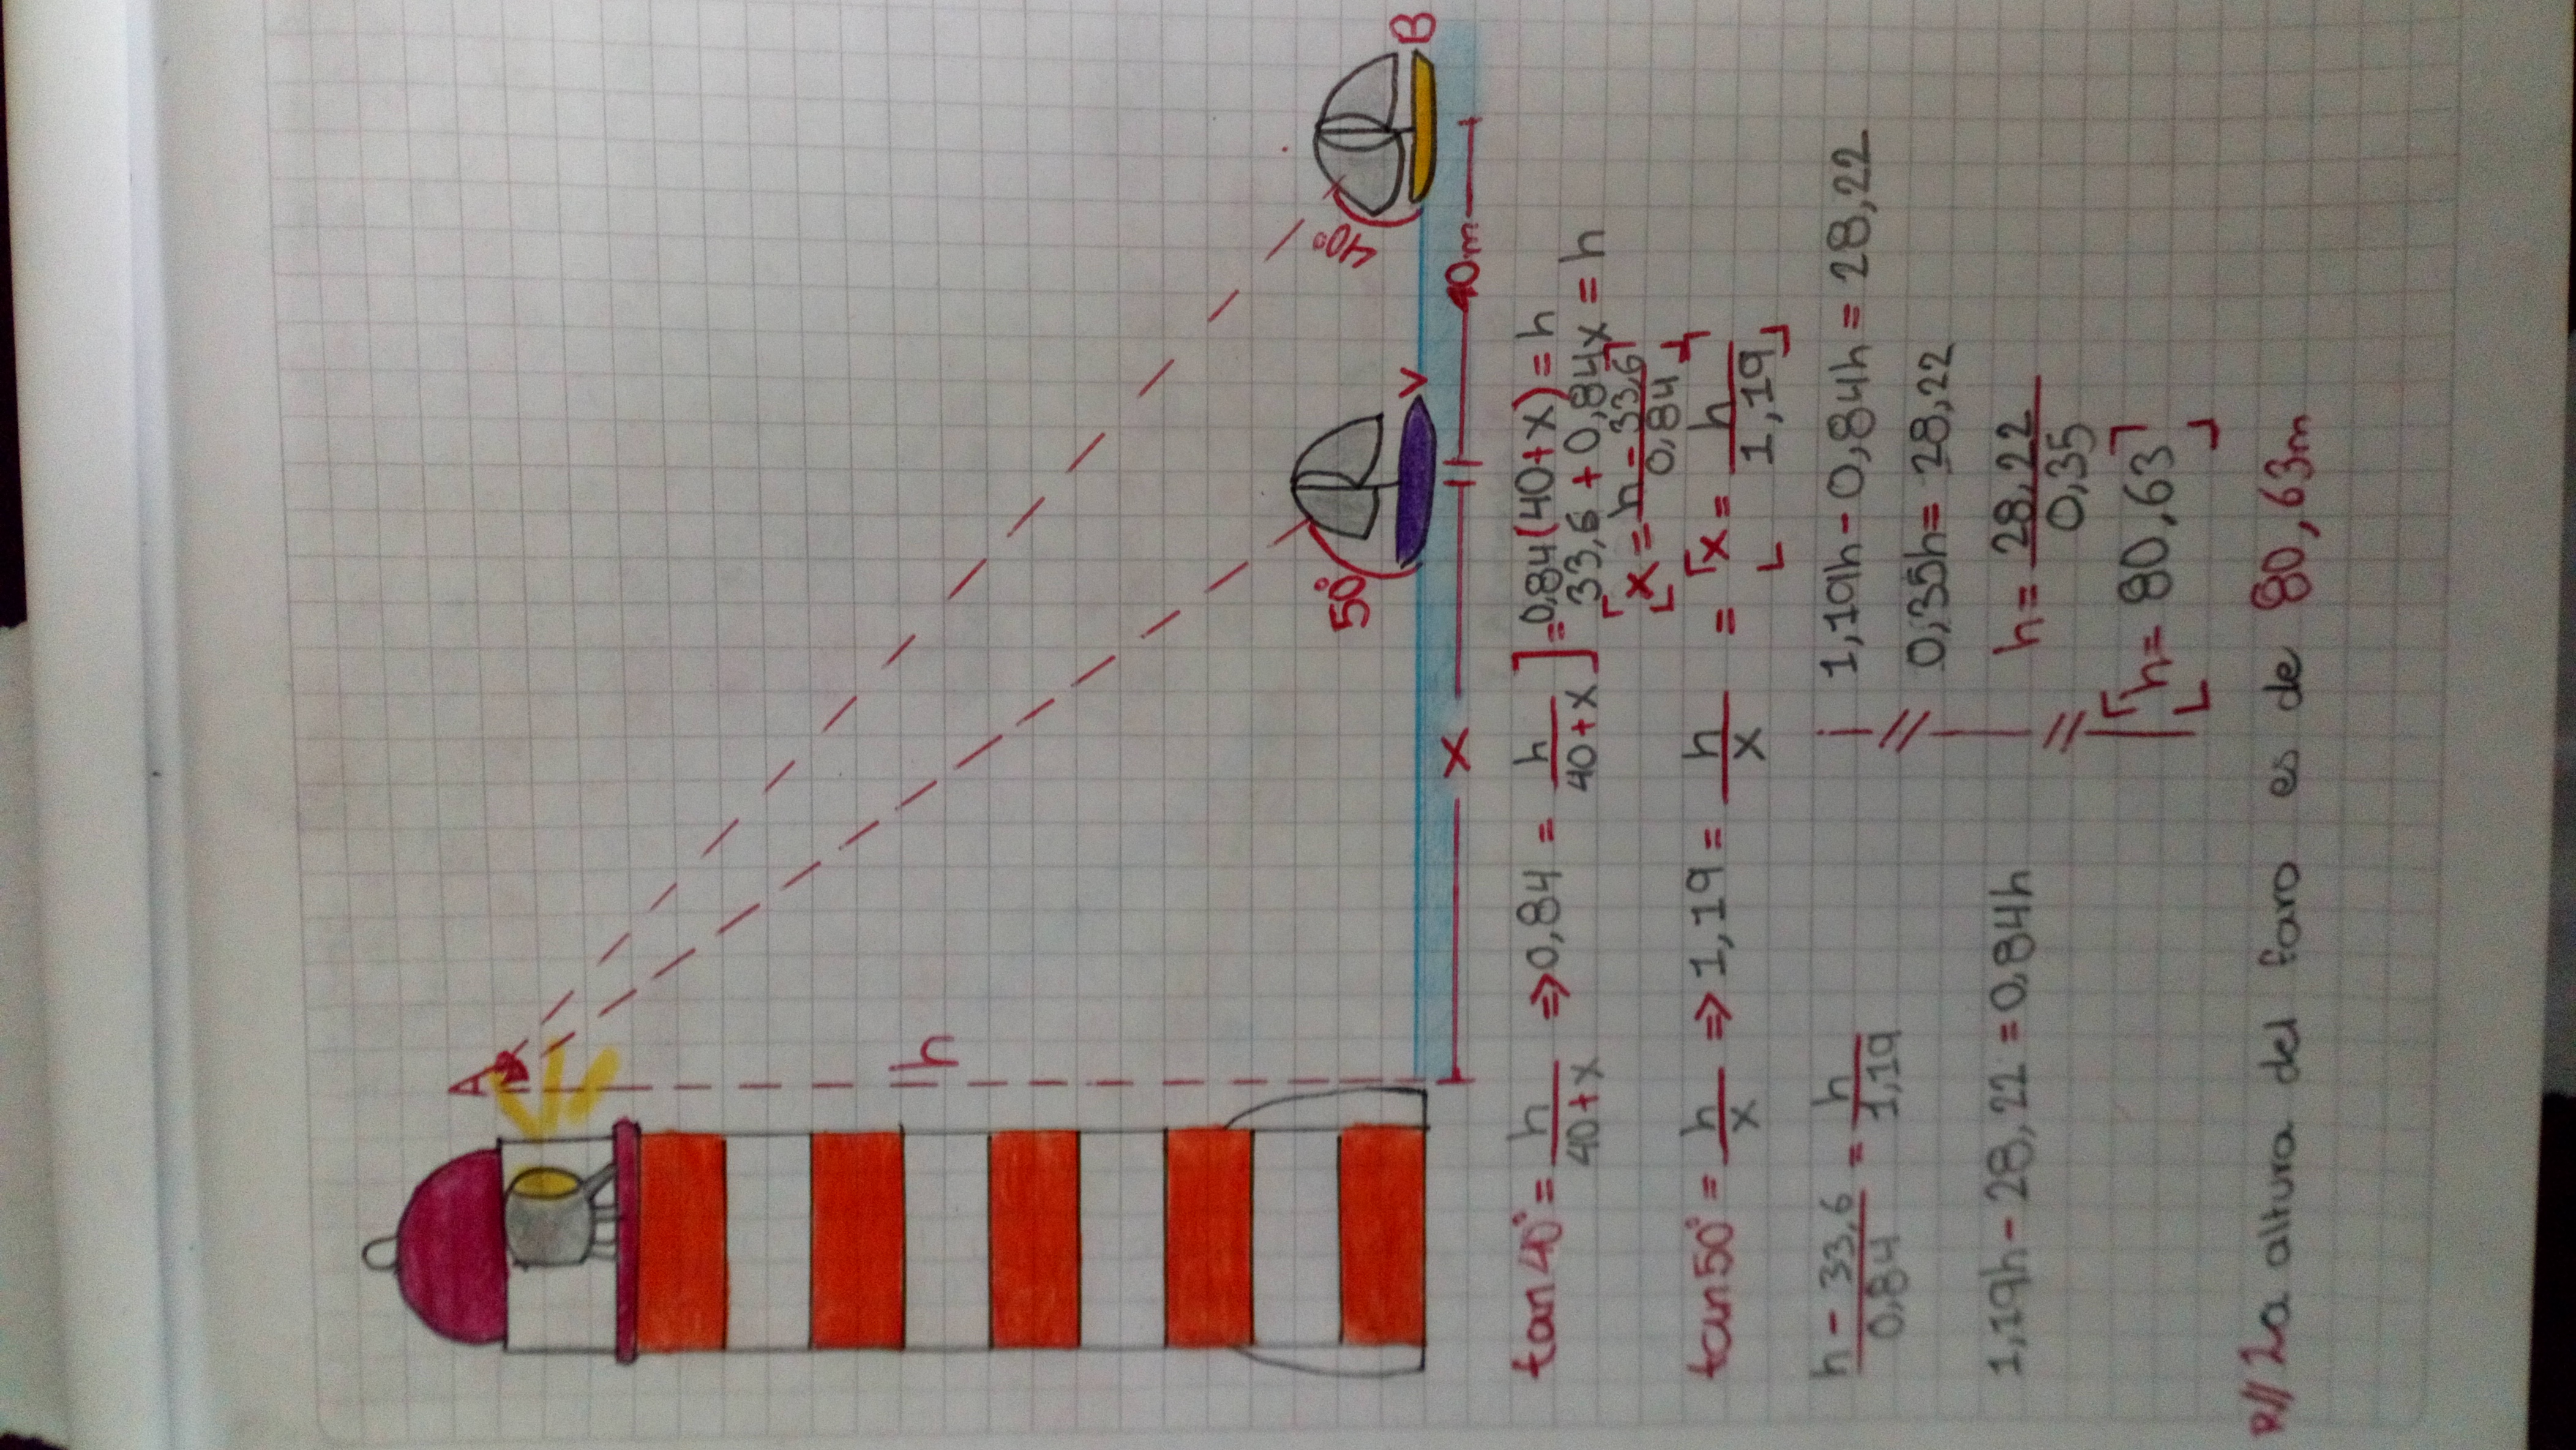 A
h
50°
40°
V
B
x
40m
tan 40° = h/(40+x) ⇒ 0,84 = h/(40+x) ] = 0,84(40+x) = h
33,6 + 0,84x = h
[x = (h - 33,6)/0,84]
tan 50° = h/x ⇒ 1,19 = h/x = [x = h/1,19]
(h - 33,6)/0,84 = h/1,19
1,19h - 28,22 = 0,84h
1,19h - 0,84h = 28,22
0,35h = 28,22
h = 28,22/0,35
[h = 80,63]
R// La altura del faro es de 80,63m